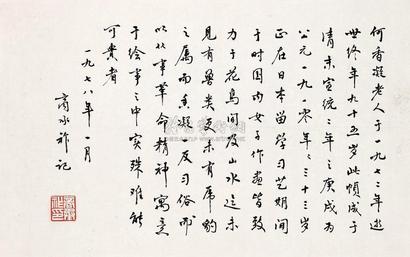 何香凝老人于一九七二年逝
世终年九十五岁此帧成于
清末宣统二年之庚戌为
公元一九一〇年年三十三岁
正在日本留学习艺期间
于时国内女子作画皆致
力于花鸟间及山水迄未
见有兽类更未有虎豹
之属而香凝一反习俗
以从事革命精神寓意
于绘事之中实殊难能
可贵者
一九七八年一月
商承祚记